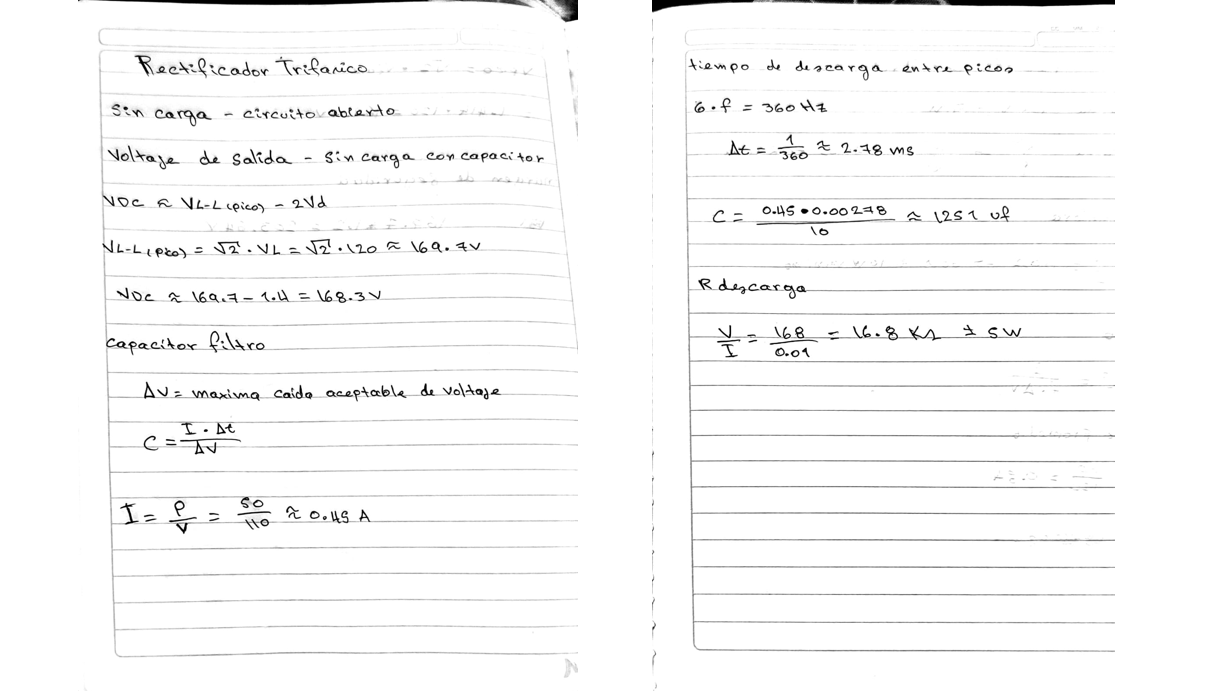 Rectificador Trifasico
Sin carga - circuito abierto
Voltaje de salida - Sin carga con capacitor
VDC ≈ VL-L (pico) - 2Vd
VL-L (pico) = √2 · VL = √2 · 120 ≈ 169.7V
VDC ≈ 169.7 - 1.4 = 168.3V
capacitor filtro
ΔV = maxima caida aceptable de voltaje
C = I · Δt / ΔV
I = P / V = 50 / 110 ≈ 0.45 A
tiempo de descarga entre picos
6 · f = 360 Hz
Δt = 1 / 360 ≈ 2.78 ms
C = 0.45 • 0.00278 / 10 ≈ 1251 uf
R descarga
V / I = 168 / 0.01 = 16.8 KΩ ± 5W